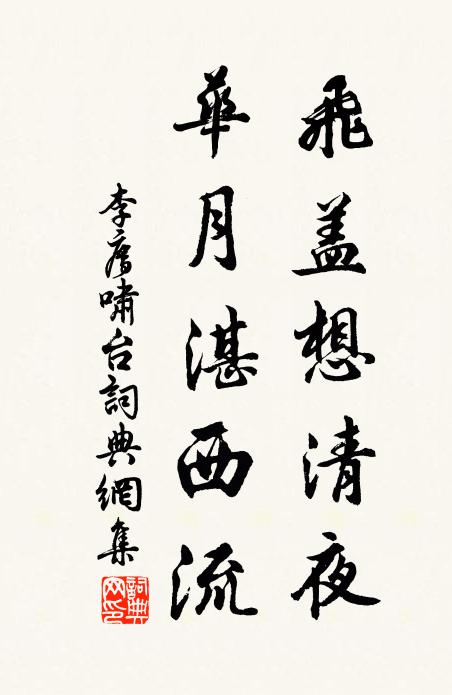 飛盖想清夜
華月湛西流
李嘯台詞典網集
詞典
网印